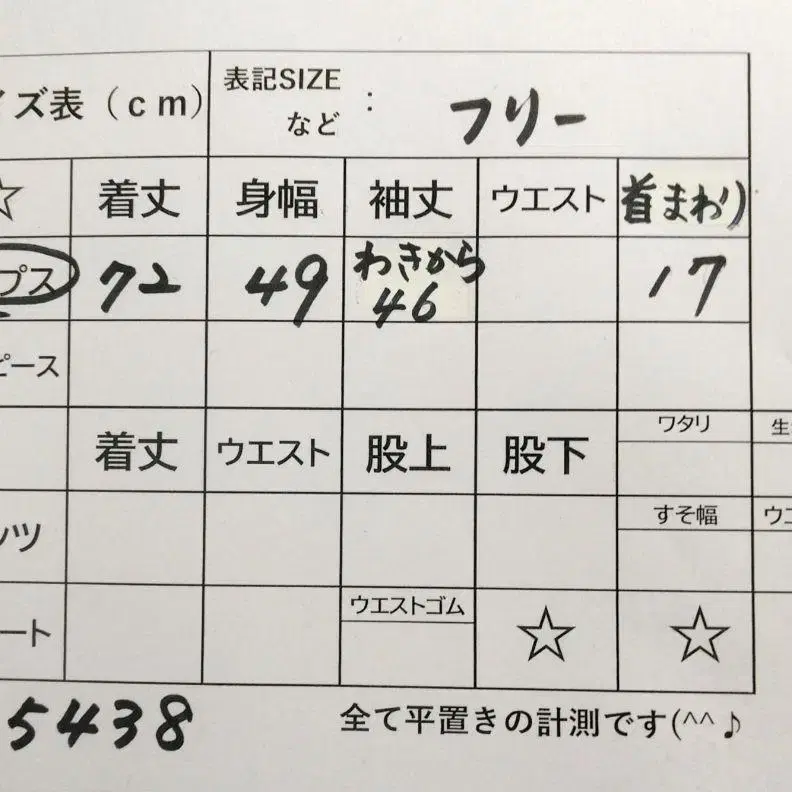 イズ表(cm) 表記SIZE など : フリー
☆ 着丈 身幅 袖丈 ウエスト 首まわり
プス 72 49 わきから 46 17
ピース
着丈 ウエスト 股上 股下 ワタリ
ンツ すそ幅 ウエ
ート ウエストゴム ☆ ☆
5438 全て平置きの計測です(^^♪